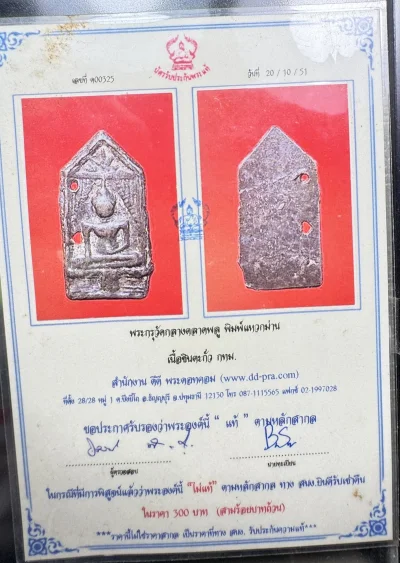 บัตรรับประกันพระแท้
เลขที่ ๑00325
วันที่ 20/10/51
พระกรุวัดกลางตลาดพลู พิมพ์แหวกม่าน
เนื้อชินตะกั่ว กทม.
สำนักงาน ดีดี พระดอทคอม (www.dd-pra.com)
ที่ตั้ง 28/28 หมู่ 1 ต.บึงยี่โถ อ.ธัญบุรี จ.ปทุมธานี 12130 โทร 087-1115565 แฟกซ์ 02-1997028
ขอประกาศรับรองว่าพระองค์นี้ “ แท้ ” ตามหลักสากล
ผู้ตรวจสอบ
นายทะเบียน
ในกรณีที่มีการพิสูจน์แล้วว่าพระองค์นี้ “ไม่แท้” ตามหลักสากล ทาง สนง.ยินดีรับเช่าคืน
ในราคา 300 บาท (สามร้อยบาทถ้วน)
***ราคานี้ไม่ใช่ราคาสากล เป็นราคาที่ทาง สนง. รับประกันความแท้***